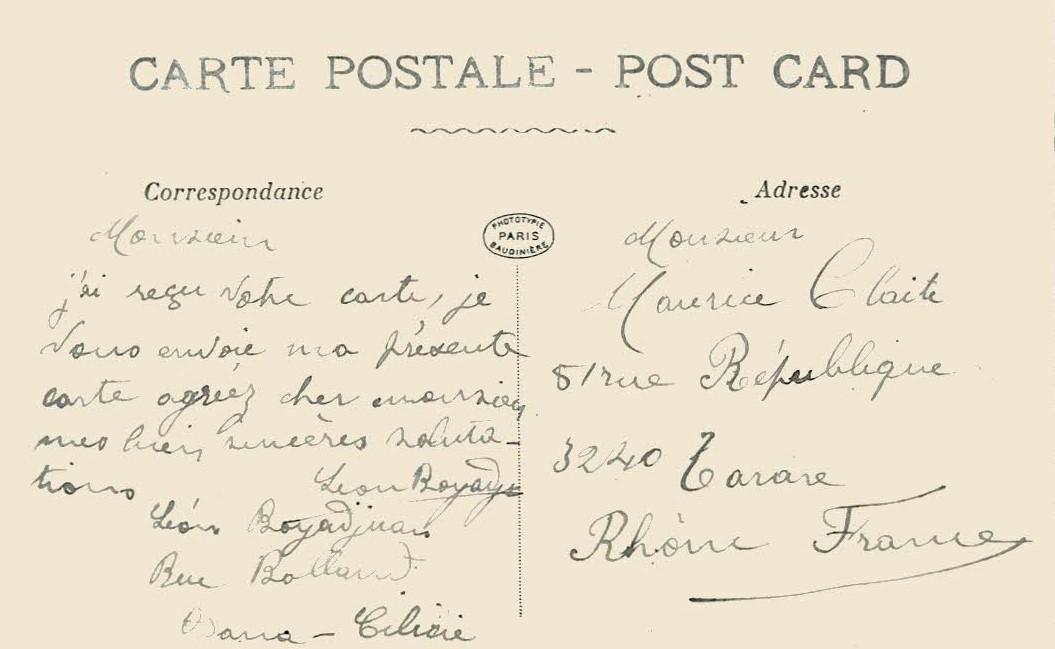 CARTE POSTALE - POST CARD
Correspondance
Monsieur
j'ai reçu votre carte, je
vous envoie ma présente
carte agréez cher monsieur
mes bien sincères saluta-
tions
Léon Boyadj
Léon Boyadjian
Rue
Adana - Cilicie
PHOTOTYPIE
PARIS
BAUDINIÈRE
Adresse
Monsieur
Maurice Claite
51 rue République
3240 Tarare
Rhône France